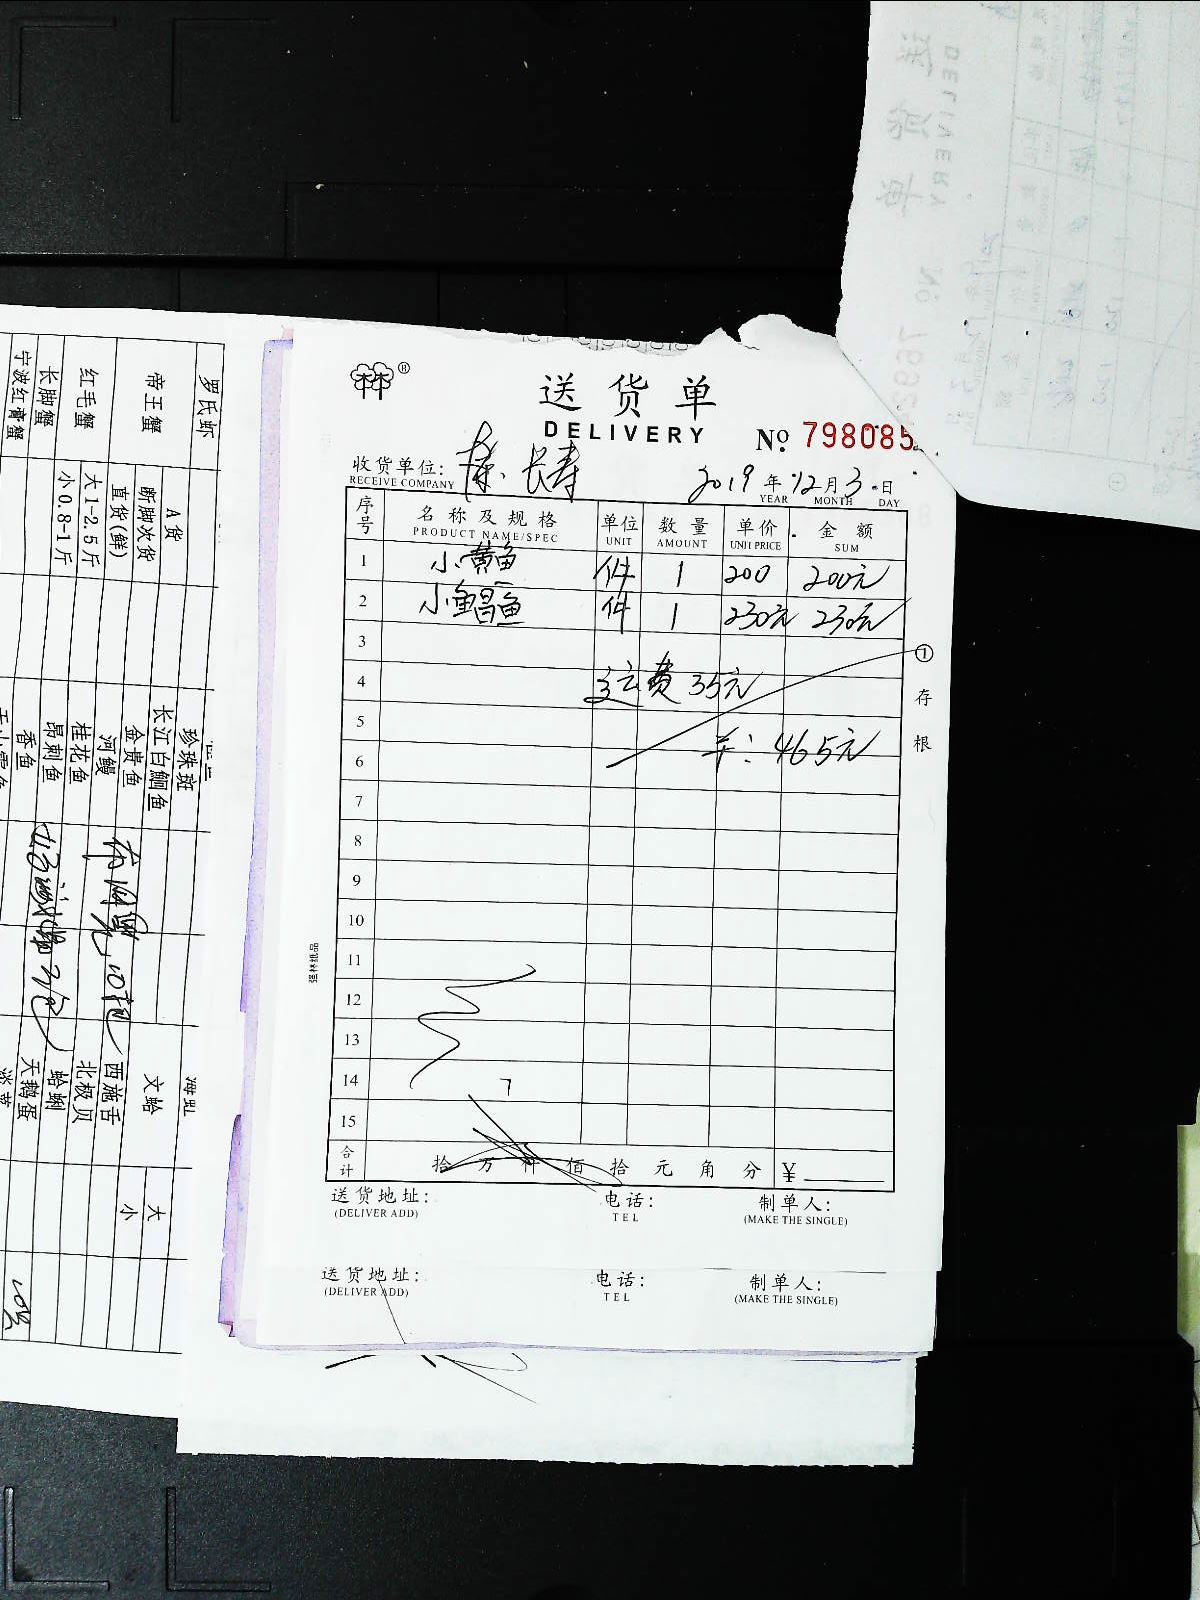 送货单
DELIVERY
№ 798085
收货单位: 陈长寿
RECEIVE COMPANY
2019 年 12 月 3 日
YEAR MONTH DAY
序号 名称及规格 单位 数量 单价 金额
PRODUCT NAME/SPEC UNIT AMOUNT UNIT PRICE SUM
1 小黄鱼 件 1 200 200元
2 小鲳鱼 件 1 230元 230元
3
4 运费 35元
5
6 465元
7
8
9
10
11
12
13
14
15
合计 拾 万 仟 佰 拾 元 角 分 ¥
送货地址: 电话: 制单人:
(DELIVER ADD) TEL (MAKE THE SINGLE)
送货地址: 电话: 制单人:
(DELIVER ADD) TEL (MAKE THE SINGLE)
① 存根
强林纸品
罗氏虾
帝王蟹 A货
断脚次货
直货(鲜)
红毛蟹 大1-2.5斤
小0.8-1斤
长脚蟹
宁波红膏蟹
珍珠斑
长江白鮰鱼
金贵鱼
河鳗
桂花鱼
昂刺鱼
香鱼
文蛤 大
小
西施舌
北极贝
蛤蜊
天鹅蛋
送货单
DELIVERY